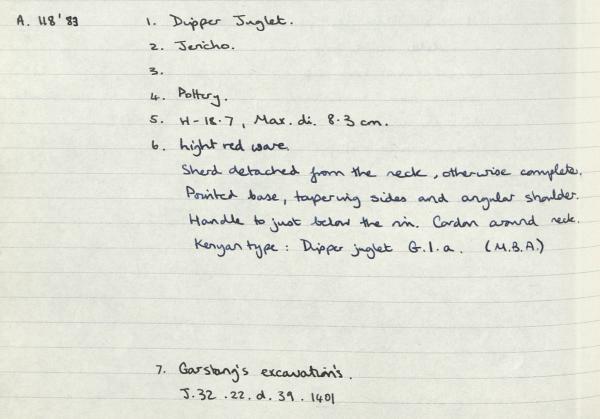 A. 118'83
1. Dipper Juglet.
2. Jericho.
3.
4. Pottery.
5. H-18.7, Max. di. 8.3 cm.
6. Light red ware.
Sherd detached from the neck, otherwise complete.
Pointed base, tapering sides and angular shoulder.
Handle to just below the rim. Cordon around neck.
Kenyan type: Dipper juglet G.1.a. (M.B.A)
7. Garstang's excavation's.
J.32.22.d.39.1401